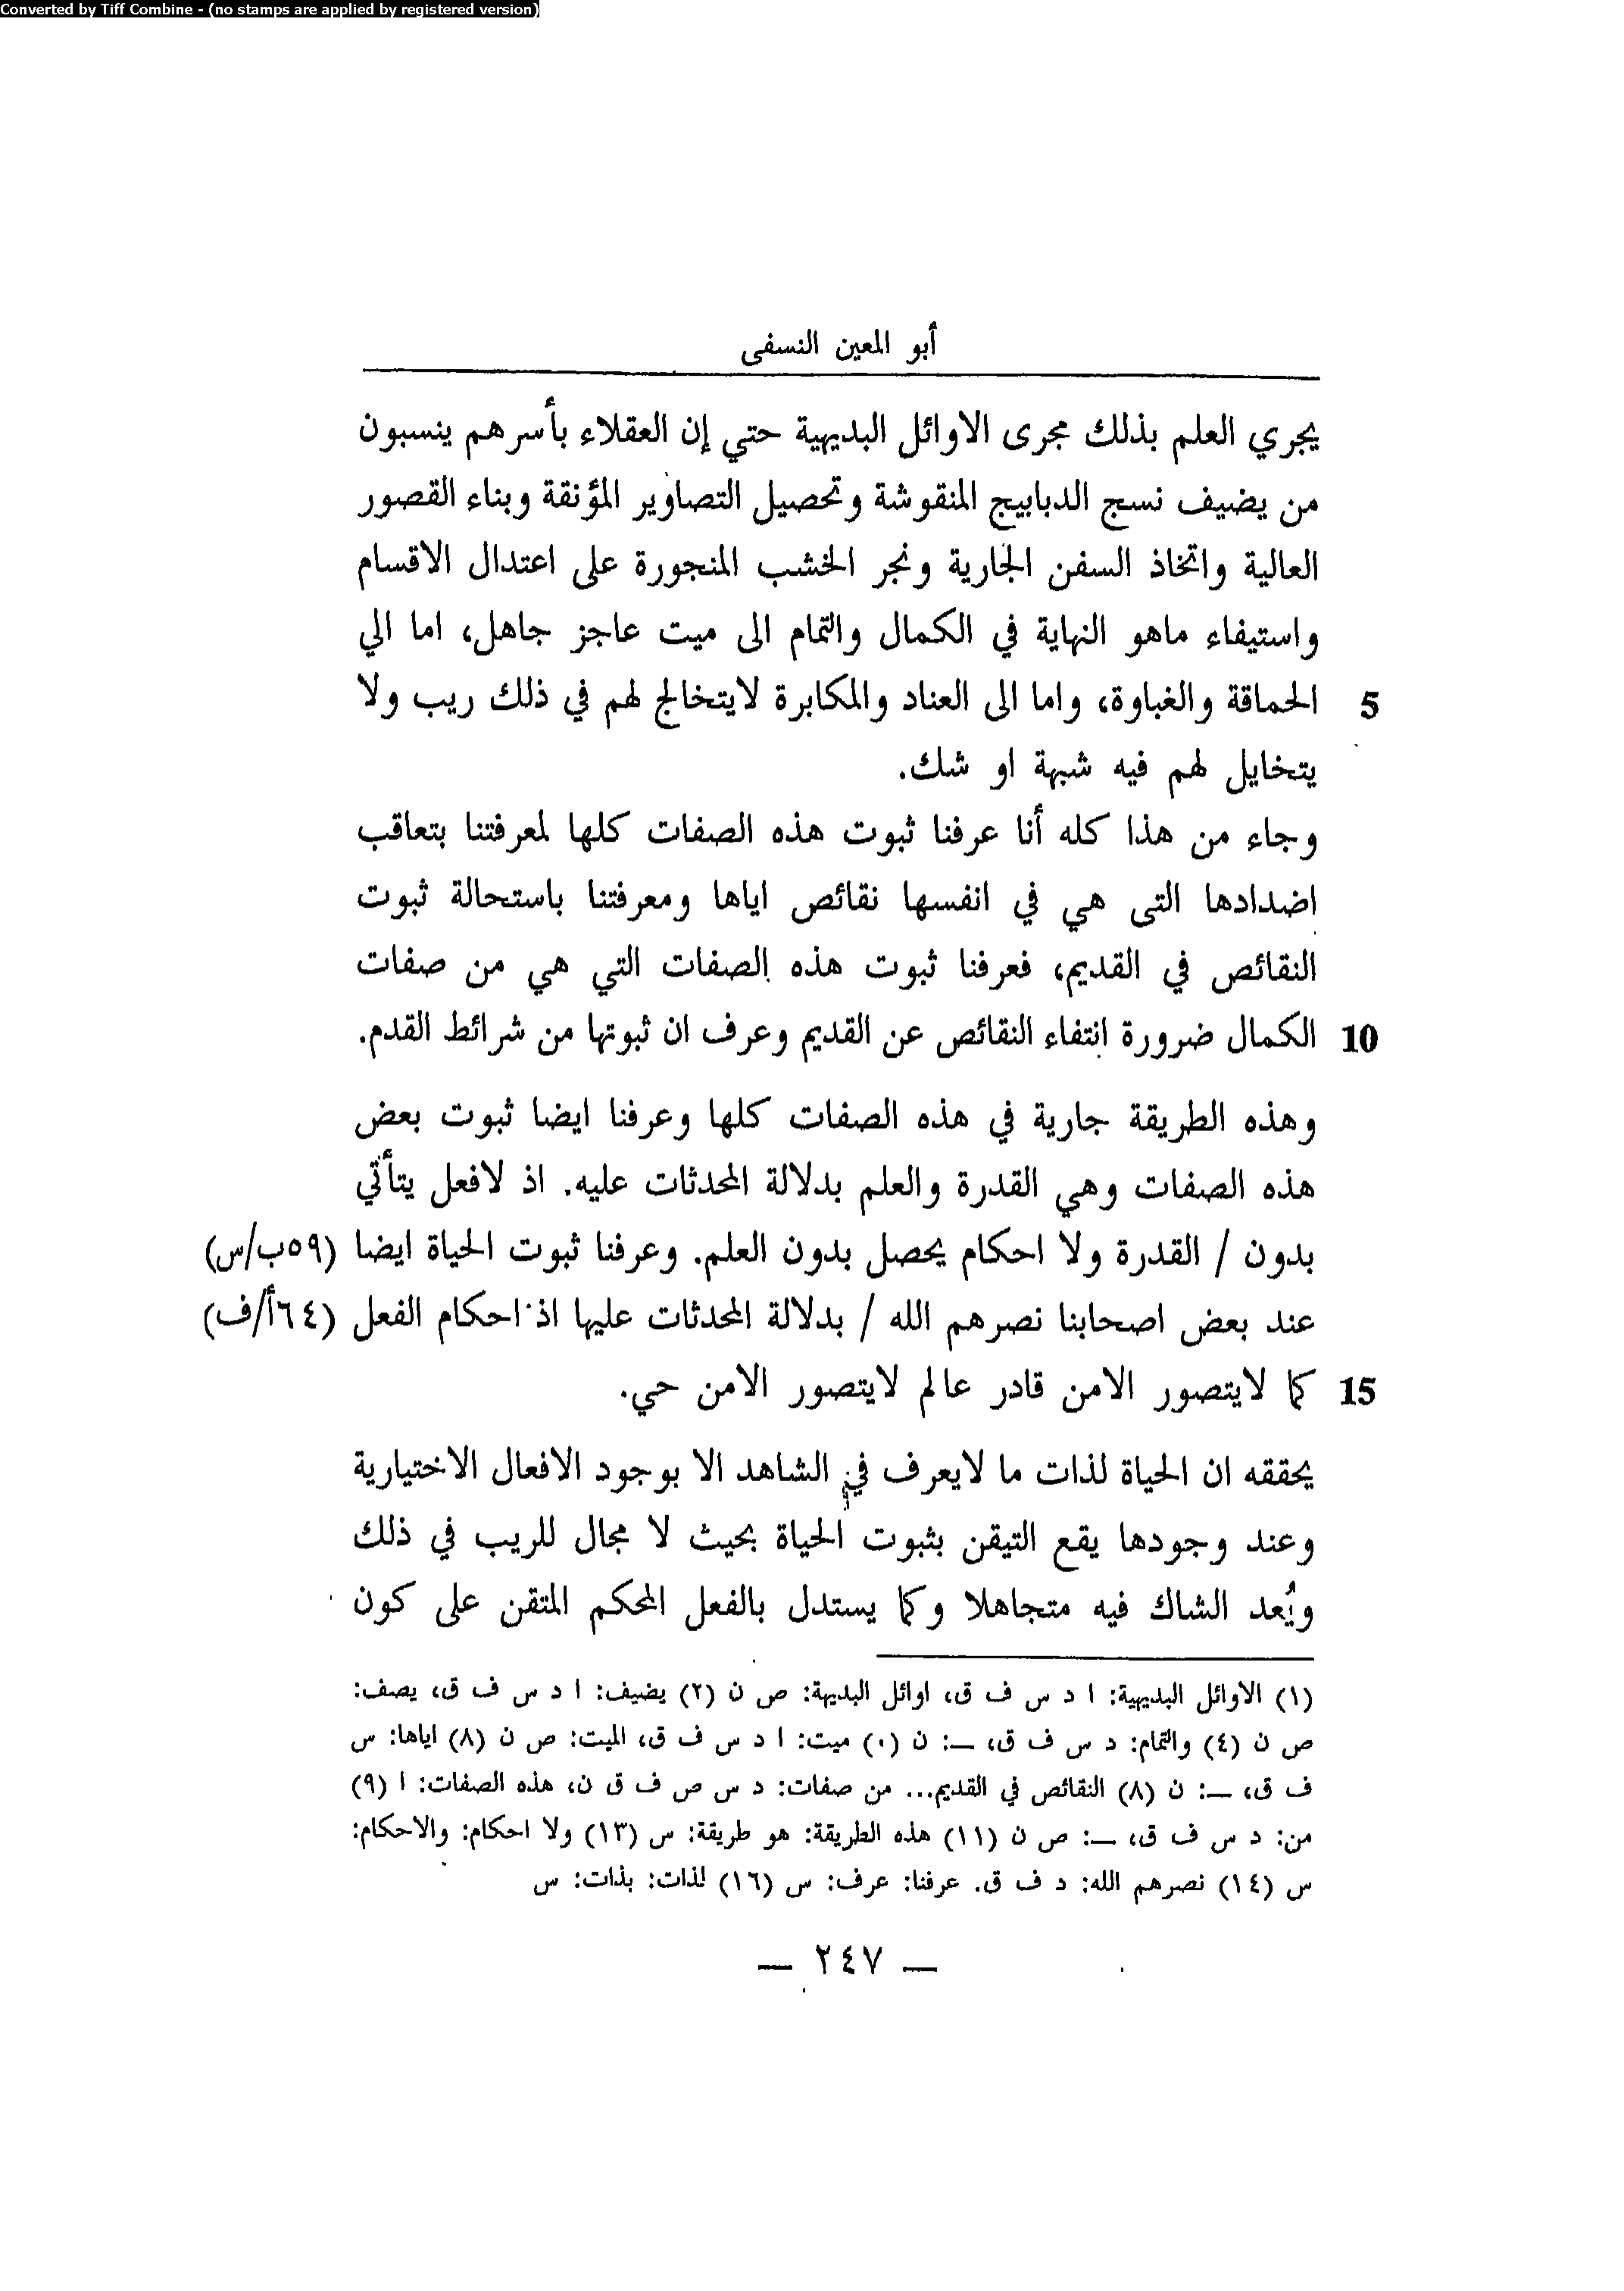 Converted by Tiff Combine - (no stamps are applied by registered version)
أبو المعين النسفى
يجري العلم بذلك مجرى الاوائل البديهية حتي إن العقلاء بأسرهم ينسبون
من يضيف نسج الدبابيج المنقوشة وتحصيل التصاوير المؤنقة وبناء القصور
العالية واتخاذ السفن الجارية ونجر الخشب المنجورة على اعتدال الاقسام
واستيفاء ماهو النهاية في الكمال والتمام الى ميت عاجز جاهل، اما الي
5 الحماقة والغباوة، واما الى العناد والمكابرة لايتخالج لهم في ذلك ريب ولا
يتخايل لهم فيه شبهة او شك.
وجاء من هذا كله أنا عرفنا ثبوت هذه الصفات كلها لمعرفتنا بتعاقب
اضدادها التى هي في انفسها نقائص اياها ومعرفتنا باستحالة ثبوت
النقائص في القديم، فعرفنا ثبوت هذه الصفات التي هي من صفات
10 الكمال ضرورة انتفاء النقائص عن القديم وعرف ان ثبوتها من شرائط القدم.
وهذه الطريقة جارية في هذه الصفات كلها وعرفنا ايضا ثبوت بعض
هذه الصفات وهي القدرة والعلم بدلالة المحدثات عليه. اذ لافعل يتأتي
بدون / القدرة ولا احكام يحصل بدون العلم. وعرفنا ثبوت الحياة ايضا (٥٩ب/س)
عند بعض اصحابنا نصرهم الله / بدلالة المحدثات عليها اذ احكام الفعل (٦٤أ/ف)
15 كما لايتصور الامن قادر عالم لايتصور الامن حي.
يحققه ان الحياة لذات ما لايعرف في الشاهد الا بوجود الافعال الاختيارية
وعند وجودها يقع التيقن بثبوت الحياة بحيث لا مجال للريب في ذلك
ويُعد الشاك فيه متجاهلا وكما يستدل بالفعل المحكم المتقن على كون
(١) الاوائل البديهية: ا د س ف ق، اوائل البديهة: ص ن (٢) يضيف: ا د س ف ق، يصف:
ص ن (٤) والتمام: د س ف ق، ــ: ن (٠) ميت: ا د س ف ق، الميت: ص ن (٨) اياها: س
ف ق، ــ: ن (٨) النقائص في القديم... من صفات: د س ص ف ق ن، هذه الصفات: ا (٩)
من: د س ف ق، ــ: ص ن (١١) هذه الطريقة: هو طريقة: س (١٣) ولا احكام: والاحكام:
س (١٤) نصرهم الله: د ف ق. عرفنا: عرف: س (١٦) لذات: بذات: س
— ٢٤٧ —